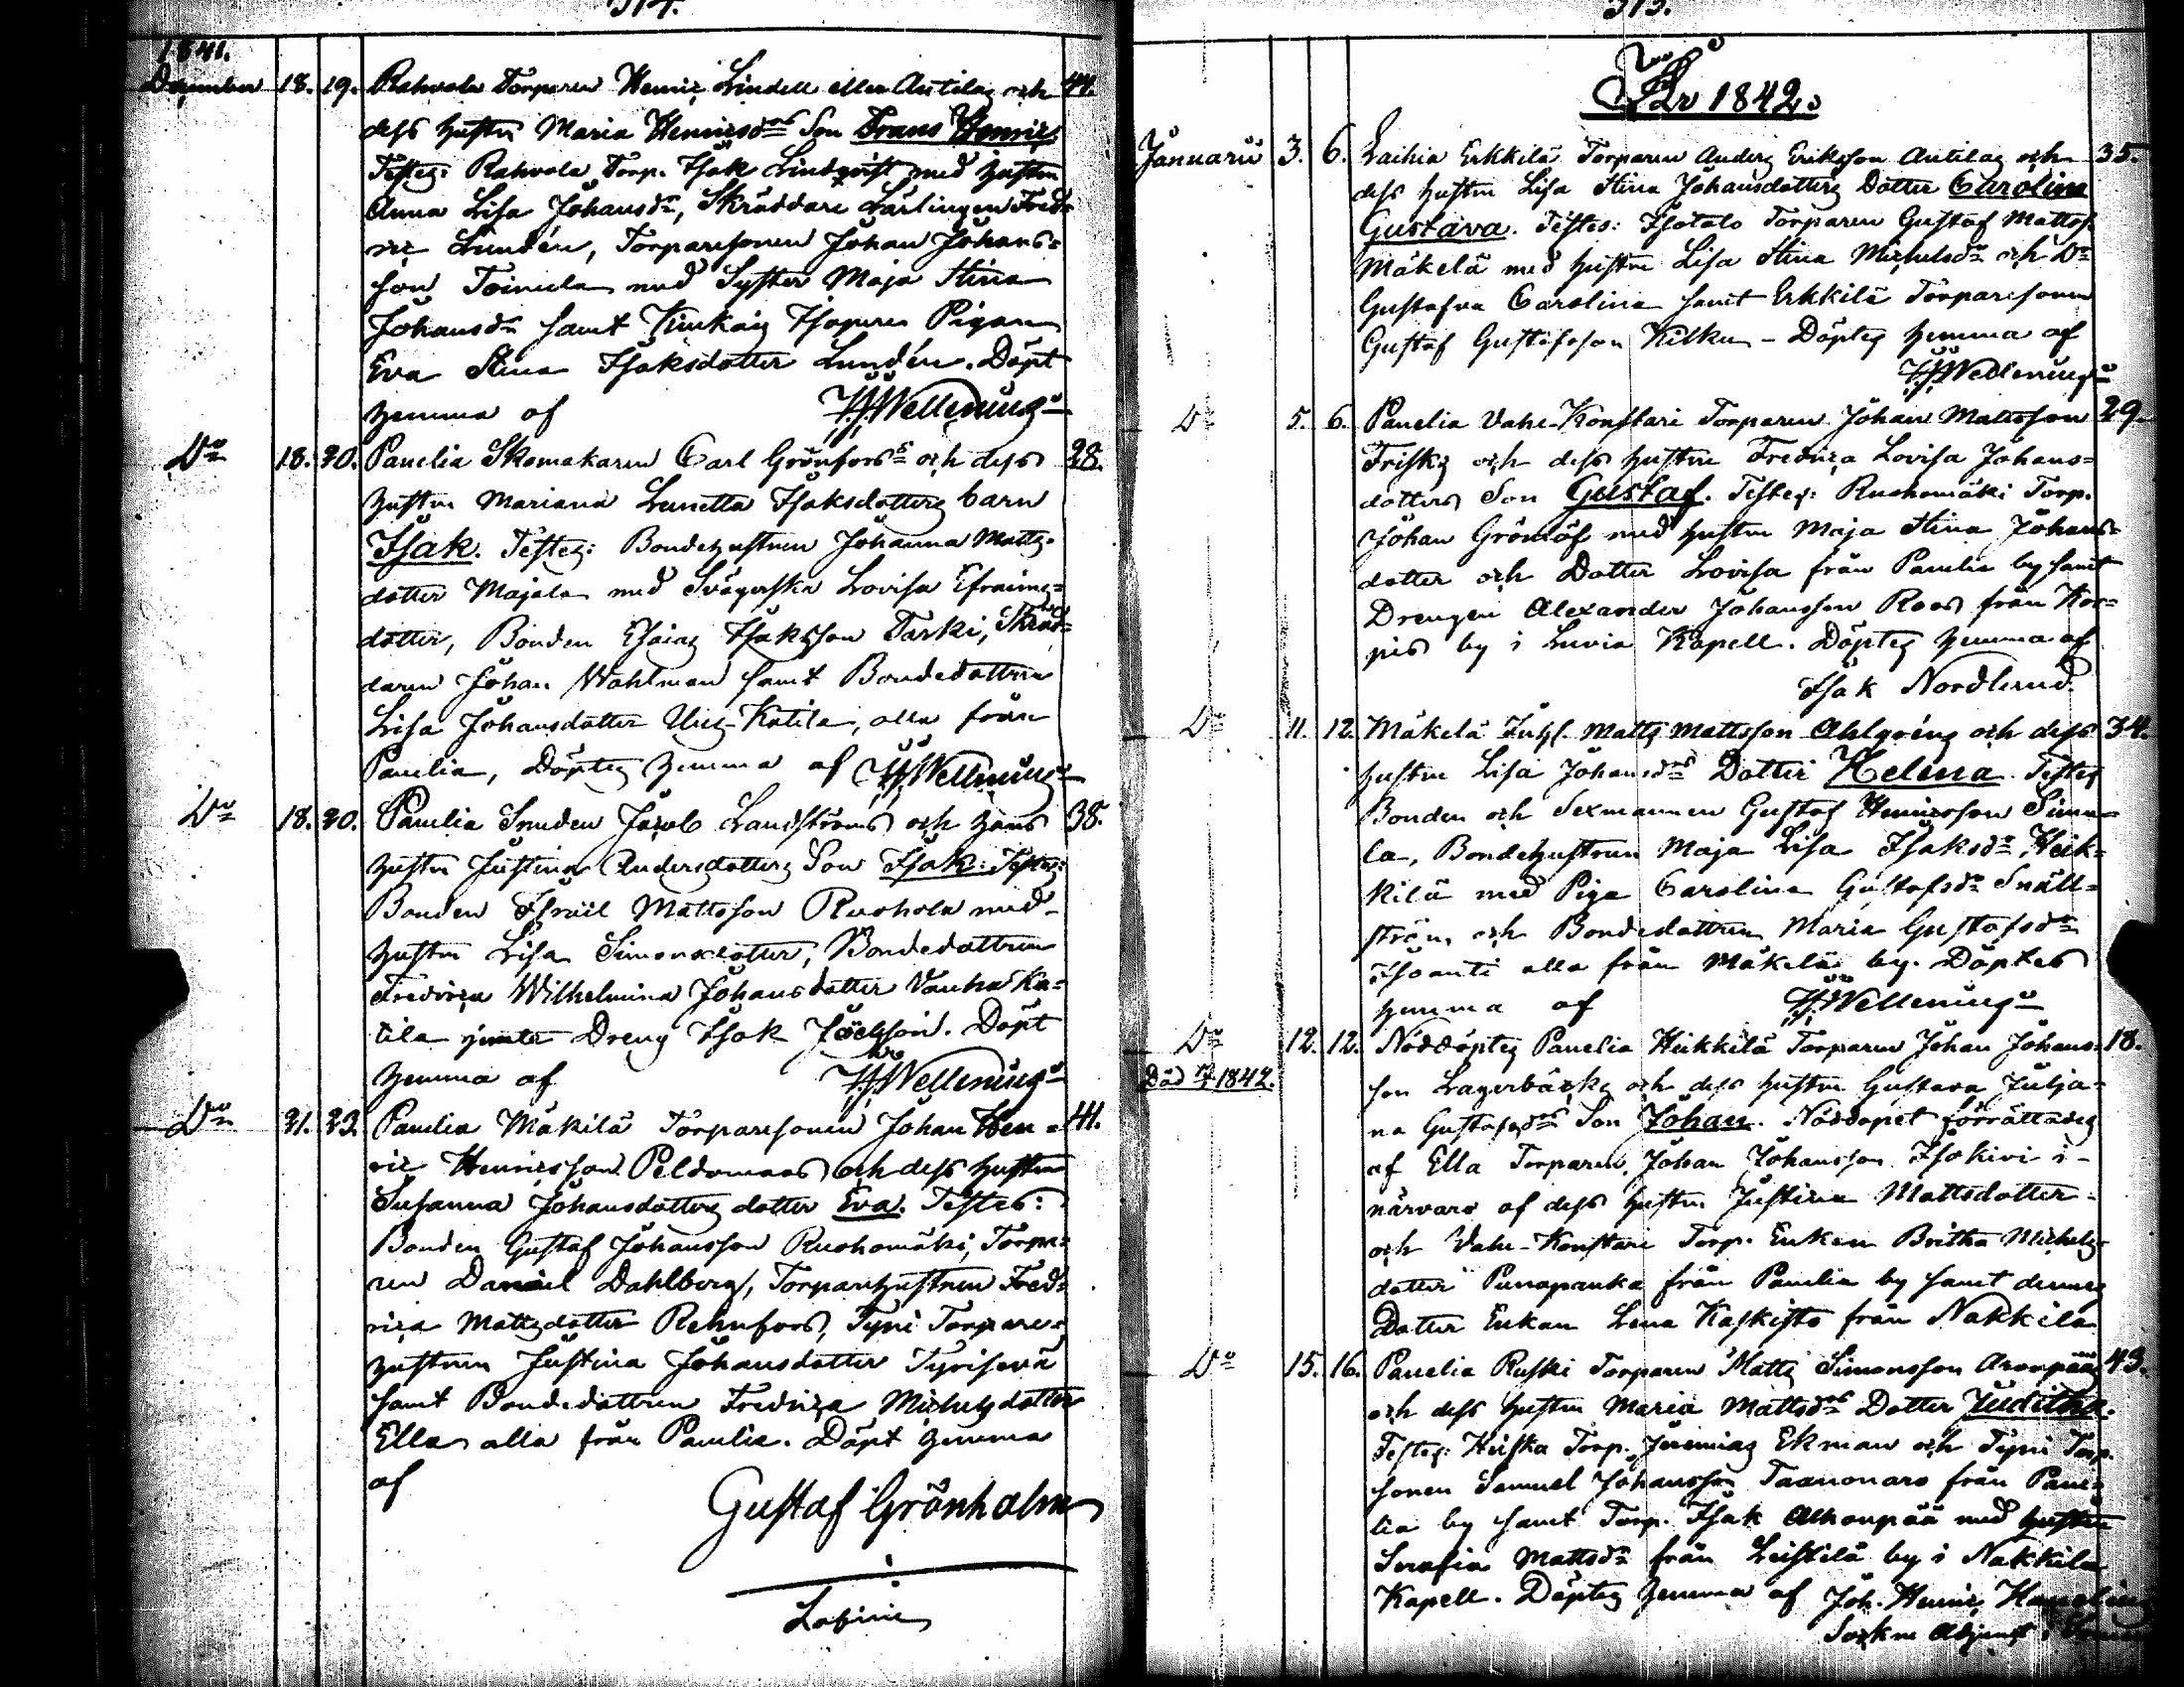 314.
1841.
December 18. 19. Rahvola Torparen Henric Lindell eller Antilas och 44.
dess hustru Maria Henricsdrs Son Frans Henric.
Testes: Rahvola Torp. Isak Lindqvist med hustru
Anna Lisa Johansdr, Skräddare Lärlingen Fred-
ric Lundén, Torparesonen Johan Johans=
son Toivola med Syster Maja Stina
Johansdr samt Kiukais Pigan
Eva Stina Isaksdotter Lundén. Döpt
hemma af HJWellenius
Do 18. 20. Panelia Skomakaren Carl Grönfors's och dess 28.
hustru Mariana Lunetta Isaksdotters barn
Isak. Testes: Bondehustrun Johanna Matts-
dotter Majala med Svägerska Lovisa Efraims=
dotter, Bonden Esaias Isaksson Tarki, Skräd=
daren Johan Wahlman samt Bondedottren
Lisa Johansdotter Uusi-Katila, alla från
Panelia, Döptes hemma af HJWellenius
Do 18. 20. Panelia Smeden Jacob Landströms och hans 38.
hustru Justina Andersdotters Son Isak. Testes:
Bonden Israel Mattsson Ruohola med
hustru Lisa Simonsdotter, Bondedottren
Fredrica Wilhelmina Johansdotter Vanha Ka=
tila jemte Dreng Isak Jacobsson. Döpt
hemma af HJWellenius
Do 21. 23. Panelia Mäkilä Torparesonen Johan Hen= 41.
ric Henricsson Peldomaas och dess hustru
Susanna Johansdotters dotter Eva. Testes:
Bonden Gustaf Johansson Ruohomäki, Torpa=
ren Daniel Dahlberg, Torparehustrun Fred=
rica Mattsdotter Rehnfors, Tyni Torpare=
hustrun Justina Johansdotter Tyrisevä
samt Bondedottren Fredrica Michelsdotter
Ella alla från Panelia. Döpt hemma
af
Gustaf Grönholm
315.
År 1842.
Januarii 3. 6. Laihia Erkkilä Torparen Anders Eriksson Antilas och 35.
dess hustru Lisa Stina Johansdotters Dotter Carolina
Gustava. Testes: Isotalo Torparen Gustaf Mattss.
Mäkelä med hustru Lisa Stina Michelsdr och Dr
Gustafva Carolina samt Erkkilä Torparesonen
Gustaf Gustafsson Kilku - Döptes hemma af
HJWellenius
Do 5. 6. Panelia Vahe-Konstari Torparen Johan Mattsson 29.
Frisks och dess hustru Fredrica Lovisa Johans=
dotters Son Gustaf. Testes: Ruohomäki Torp.
Johan Grönlöf med hustru Maja Stina Johans=
dotter och Dotter Lovisa från Panelia by samt
Drengen Alexander Johansson Roos från Kor=
pis by i Luvia Kapell. Döptes hemma af
Isak Nordlund.
Do 11. 12. Mäkelä Inhs. Matts Mattsson Ahlgréns och dess 34.
hustru Lisa Johansdrs Dotter Helena. Testes
Bonden och Sexmannen Gustaf Henricsson Simu=
la, Bondehustrun Maja Lisa Isaksdr Heik=
kilä med Piga Carolina Gustafsdr Snäll=
ström och Bondedottren Maria Gustafsdr
Isoanti alla från Mäkelä by. Döptes
hemma af HJWellenius
Do 12. 12. Nöddöptes Panelia Heikkilä Torparen Johan Johans= 18.
Död 1842. son Lagerbäcks och dess hustru Gustava Julja=
na Gustafsdrs Son Johan. Nöddopet förrättades
af Ella Torparen Johan Johansson Isokivi i
närvaro af dess hustru Justina Mattsdotter
och Vahe-Konstari Torp. Enkan Britha Michels=
dotter Punapauka från Panelia by samt dennes
Dotter Enkan Lena Kaskisto från Nakkila
Do 15. 16. Panelia Ruski Torparen Matts Simonsson Aronpääs 43.
och dess hustru Maria Mattsdrs Dotter Juditha.
Testes: Torp. Jeremias Ekman och Tyni Torp.
sonen Samuel Johansson från Pane=
lia by samt Torp. Isak Alhonpää med hustru
Serafia Mattsdr från Leistilä by i Nakkila
Kapell. Döptes hemma af Joh. Henric Hanelius
Sockne Adjunct i